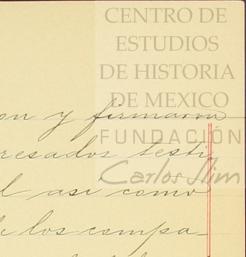 CENTRO DE
ESTUDIOS
DE HISTORIA
DE MEXICO
FUNDACIÓN
Carlos Slim
on y firmaron
resados testi
l asi como
e los compa-